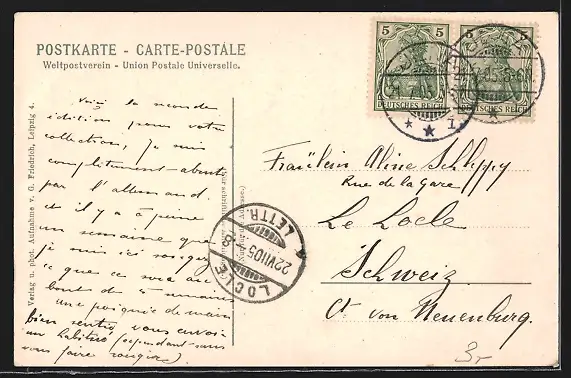 POSTKARTE - CARTE-POSTALE
Weltpostverein - Union Postale Universelle.
5 5
5 5
DEUTSCHES REICH
DEUTSCHES REICH
Voici la seconde
édition pour votre
collection, je suis
complètement abruti
par l'allemand
et il y a à peine
une semaine que
je suis ici
ce que ce sera au
bout de semaines
une poignée de main
bien sentie, vous envoie
un habitué (cependant sans
vous faire rougir)
Fräulein Aline Schleppy
Rue de la Gare
Le Locle
Schweiz
Ct von Neuenburg.
LOCLE
22.VII.05 - 8
LETTR.
Verlag u. phot. Aufnahme v. G. Friedrich, Leipzig 4.
3.-